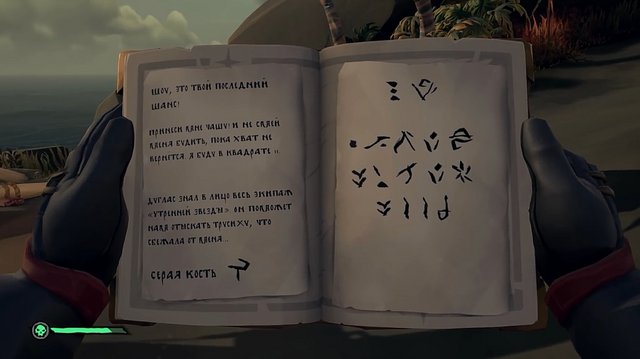 ШОУ, ЭТО ТВОЙ ПОСЛЕДНИЙ
ШАНС!
ПРИНЕСИ МНЕ ЧАШУ! И НЕ СМЕЙ
МЕНЯ БУДИТЬ, ПОКА ХВАТ НЕ
ВЕРНЕТСЯ. Я БУДУ В КВАДРАТЕ
ДУГЛАС ЗНАЛ В ЛИЦО ВЕСЬ ЭКИПАЖ
«УТРЕННЕЙ ЗВЕЗДЫ». ОН ПОМОЖЕТ
НАМ ОТЫСКАТЬ ТРУСИХУ, ЧТО
СБЕЖАЛА ОТ МЕНЯ...
СЕРАЯ КОСТЬ